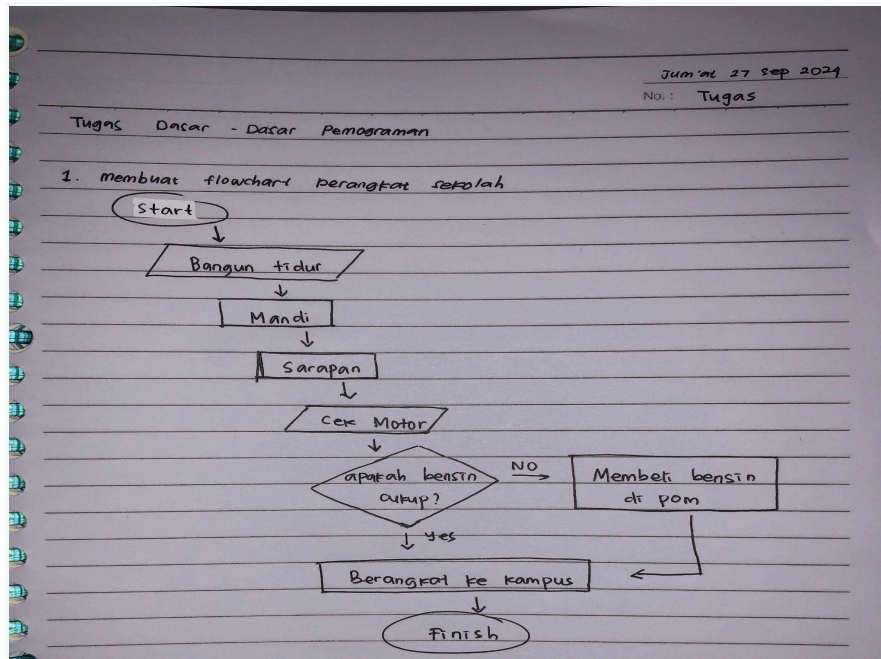 Jum'at 27 Sep 2024
No. : Tugas
Tugas Dasar - Dasar Pemograman
1. membuat flowchart berangkat sekolah
Start
Bangun tidur
Mandi
Sarapan
Cek Motor
apakah bensin
cukup?
NO
Membeli bensin
di pom
Yes
Berangkat ke kampus
Finish